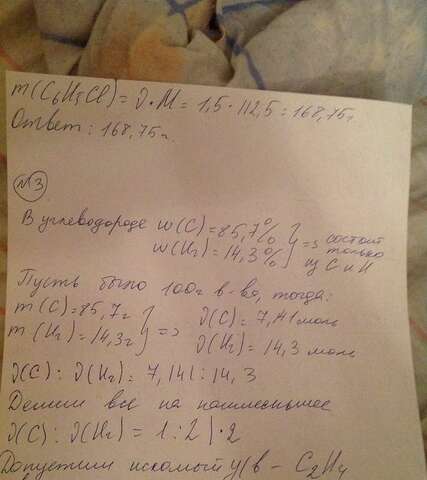 m(C₆H₅Cl) = ν·M = 1,5·112,5 = 168,75г.
Ответ: 168,75г.
№3
В углеводороде w(C)=85,7%
w(H₂)=14,3%
} => состоит только из С и Н
Пусть было 100г в-ва, тогда:
m(C)=85,7г } => ν(C)=7,41моль
m(H₂)=14,3г ν(H₂)=14,3 моль
ν(C):ν(H₂)=7,141:14,3
Делим все на наименьшее
ν(C):ν(H₂)=1:2 |·2
Допустим искомый у/в - C₂H₄